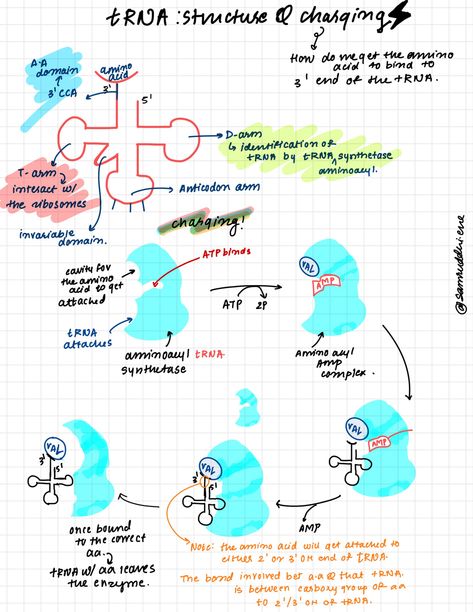 tRNA : structure & charging
How do we get the amino
acid to bind to
3' end of the tRNA.
A·A
domain
3' CCA
amino
acid
3'
5'
D-arm
identification of
tRNA by tRNA synthetase
aminoacyl.
T-arm
interact w/
the ribosomes
Anticodon arm
invariable
domain.
charging!
cavity for
the amino
acid to get
attached
ATP binds
tRNA
attaches
aminoacyl tRNA
synthetase
ATP
2P
VAL
AMP
Amino acyl
AMP
complex.
@samruddhiene
VAL
AMP
AMP
VAL
3'
5'
VAL
3'
5'
once bound
to the correct
aa.
tRNA w/ aa leaves
the enzyme.
Note: the amino acid will get attached to
either 2' or 3' OH end of tRNA.
The bond involved bet a·a & that tRNA.
is between carboxy group of aa
to 2'/3' OH of tRNA.